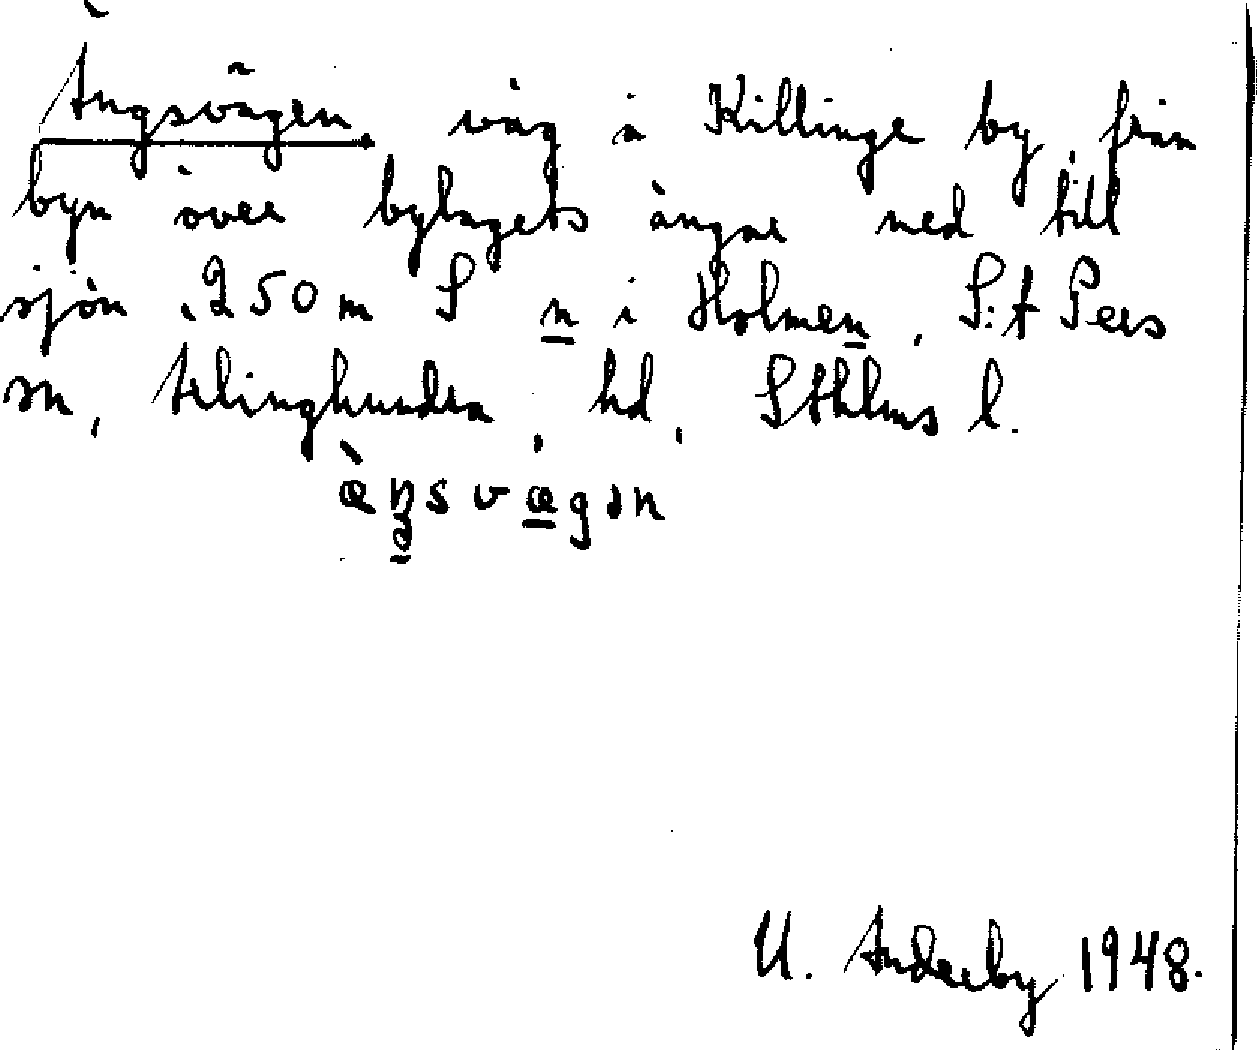 Ängsvägen, väg å Killinge by, från
byn över bylagets ängar ned till
sjön, 250 m S n i Holmen, S:t Pers
sn, Ärlinghundra, hd, Sthlms l.
U. Anderby 1948.